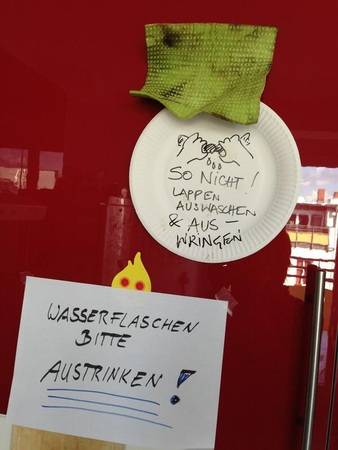 SO NICHT!
LAPPEN
AUSWASCHEN
& AUS-
WRINGEN
WASSERFLASCHEN
BITTE
AUSTRINKEN!